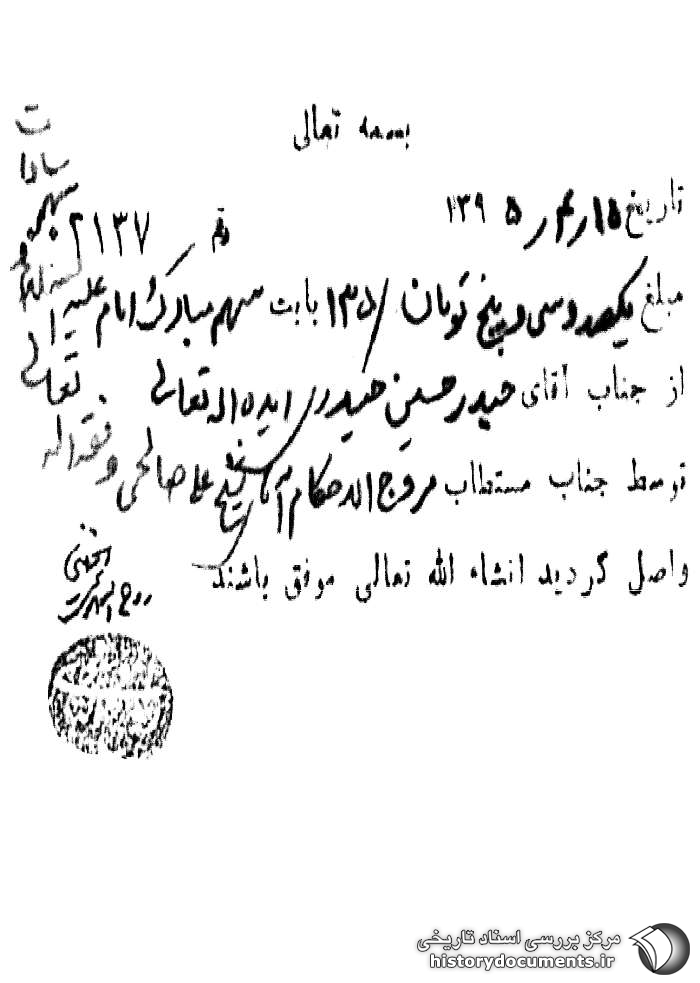 بسمه تعالی
تاریخ ۱۵ ر ۴ ر ۱۳۹۵
نم ۲۱۳۷
مبلغ یکصد و سی و پنج تومان /۱۳۵ بابت سهم مبارک امام علیه
از جناب آقای حیدر حسین حیدری ایده اله تعالی
توسط جناب مستطاب مروج الاحکام آقای شیخ علی صالحی وفقه اله تعالی
واصل گردید انشاء الله تعالی موفق باشند
سهم سادات
روح اله الموسوی الخمینی
مرکز بررسی اسناد تاریخی
historydocuments.ir